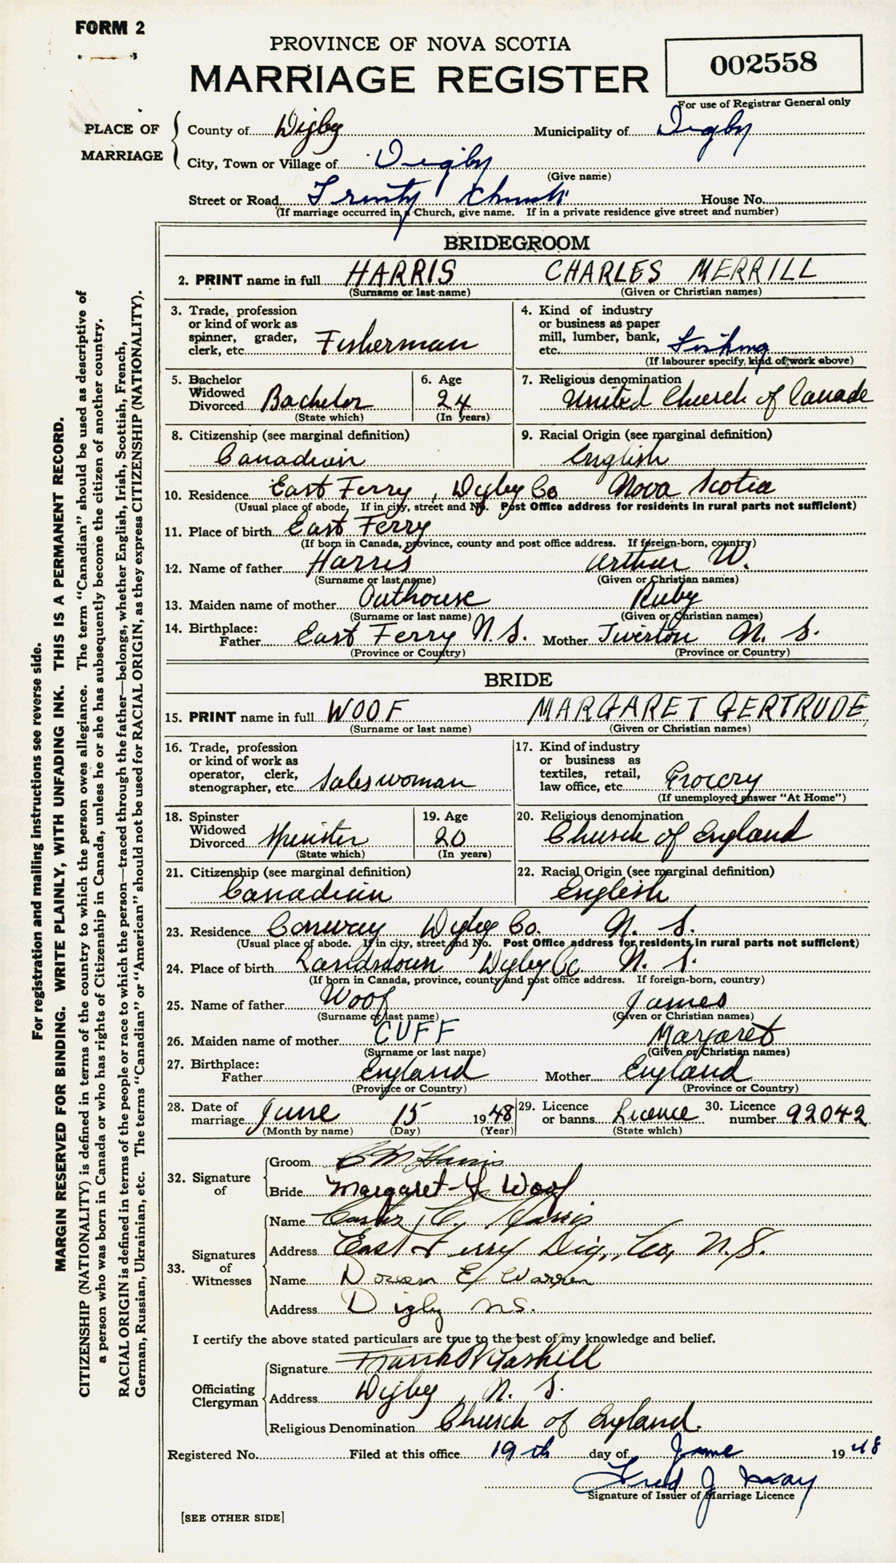 FORM 2
PROVINCE OF NOVA SCOTIA
MARRIAGE REGISTER
002558
For use of Registrar General only
PLACE OF MARRIAGE
County of Digby Municipality of Digby
City, Town or Village of Digby
(Give name)
Street or Road Trinity Church House No.
(If marriage occurred in a Church, give name. If in a private residence give street and number)
BRIDEGROOM
2. PRINT name in full HARRIS CHARLES MERRILL
(Surname or last name) (Given or Christian names)
3. Trade, profession or kind of work as spinner, grader, clerk, etc. Fisherman
4. Kind of industry or business as paper mill, lumber, bank, etc. Fishing
(If labourer specify, kind of work above)
5. Bachelor Widowed Divorced Bachelor
(State which)
6. Age 24
(In years)
7. Religious denomination
United Church of Canada
8. Citizenship (see marginal definition)
Canadian
9. Racial Origin (see marginal definition)
English
10. Residence East Ferry, Digby Co Nova Scotia
(Usual place of abode. If in city, street and No. Post Office address for residents in rural parts not sufficient)
11. Place of birth East Ferry
(If born in Canada, province, county and post office address. If foreign-born, country)
12. Name of father Harris Arthur W.
(Surname or last name) (Given or Christian names)
13. Maiden name of mother Outhouse Ruby
(Surname or last name) (Given or Christian names)
14. Birthplace: Father East Ferry N. S. Mother Tiverton N. S.
(Province or Country) (Province or Country)
BRIDE
15. PRINT name in full WOOF MARGARET GERTRUDE
(Surname or last name) (Given or Christian names)
16. Trade, profession or kind of work as operator, clerk, stenographer, etc. Saleswoman
17. Kind of industry or business as textiles, retail, law office, etc. Grocery
(If unemployed answer "At Home")
18. Spinster Widowed Divorced Spinster
(State which)
19. Age 20
(In years)
20. Religious denomination
Church of England
21. Citizenship (see marginal definition)
Canadian
22. Racial Origin (see marginal definition)
English
23. Residence Conway Digby Co. N. S.
(Usual place of abode. If in city, street and No. Post Office address for residents in rural parts not sufficient)
24. Place of birth Lansdown Digby Co N. S.
(If born in Canada, province, county and post office address. If foreign-born, country)
25. Name of father Woof James
(Surname of last name) (Given or Christian names)
26. Maiden name of mother CUFF Margaret
(Surname or last name) (Given or Christian names)
27. Birthplace: Father England Mother England
(Province or Country) (Province or Country)
28. Date of marriage June 15 1948
(Month by name) (Day) (Year)
29. Licence or banns Licence
(State which)
30. Licence number 92042
32. Signature of
Groom C M Harris
Bride Margaret G Woof
33. Signatures of Witnesses
Name C. Harris
Address East Ferry Dig. Co. N. S.
Name E. Warren
Address Digby N.S.
I certify the above stated particulars are true to the best of my knowledge and belief.
Officiating Clergyman
Signature Frank R Gaskill
Address Digby, N. S.
Religious Denomination Church of England.
Registered No. Filed at this office 19th day of June 1948
Fred J
Signature of Issuer of Marriage Licence
[SEE OTHER SIDE]
For registration and mailing instructions see reverse side.
MARGIN RESERVED FOR BINDING. WRITE PLAINLY, WITH UNFADING INK. THIS IS A PERMANENT RECORD.
CITIZENSHIP (NATIONALITY) is defined in terms of the country to which the person owes allegiance. The term "Canadian" should be used as descriptive of
a person who was born in Canada or who has rights of Citizenship in Canada, unless he or she has subsequently become the citizen of another country.
RACIAL ORIGIN is defined in terms of the people or race to which the person—traced through the father—belongs, whether English, Irish, Scottish, French,
German, Russian, Ukrainian, etc. The terms "Canadian" or "American" should not be used for RACIAL ORIGIN, as they express CITIZENSHIP (NATIONALITY).